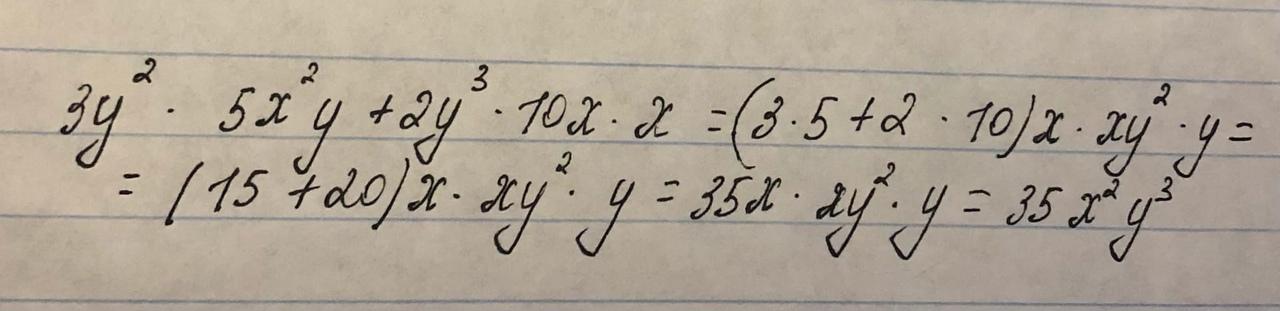 3y² · 5x²y + 2y³ · 10x · x = (3 · 5 + 2 · 10)x · xy² · y =
= (15 + 20)x · xy² · y = 35x · xy² · y = 35x²y³